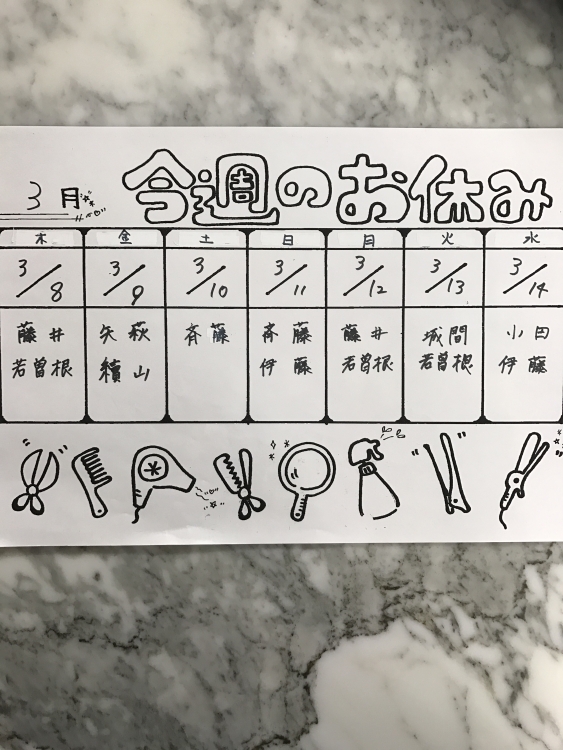 3月
今週のお休み
木 金 土 日 月 火 水
3/8 3/9 3/10 3/11 3/12 3/13 3/14
藤井 矢萩 斉藤 斉藤 藤井 城間 小田
若曽根 續山 伊藤 若曽根 若曽根 伊藤